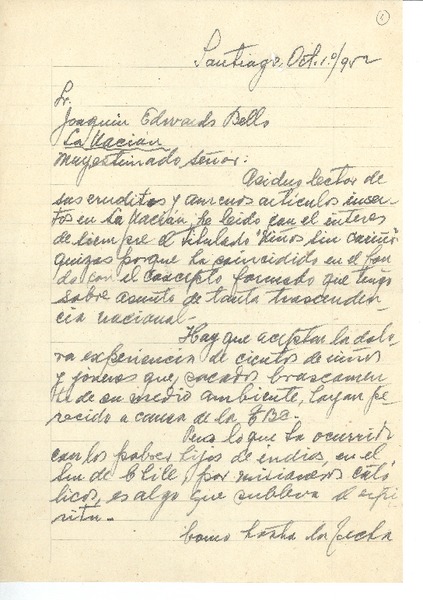 1
Santiago, Oct. 1º/952
Sr.
Joaquín Edwards Bello
La Nación
Muy estimado señor:
Asiduo lector de
sus eruditos y amenos artículos inser-
tos en La Nación, he leído con el interés
de siempre el titulado "Niños sin cariño"
quizás porque ha coincidido en el fon-
do con el concepto formado que tengo
sobre asunto de tanta trascenden-
cia nacional.-
Hay que aceptar la dolo-
ra experiencia de cientos de niños
y jóvenes que, sacados bruscamen-
te de su medio ambiente, hayan pe-
recido a causa de la TBC.
Pero lo que ha ocurrido
con los pobres hijos de indios, en el
Sur de Chile, por misioneros cató-
licos, es algo que subleva el espí-
ritu.-
Como hasta la fecha